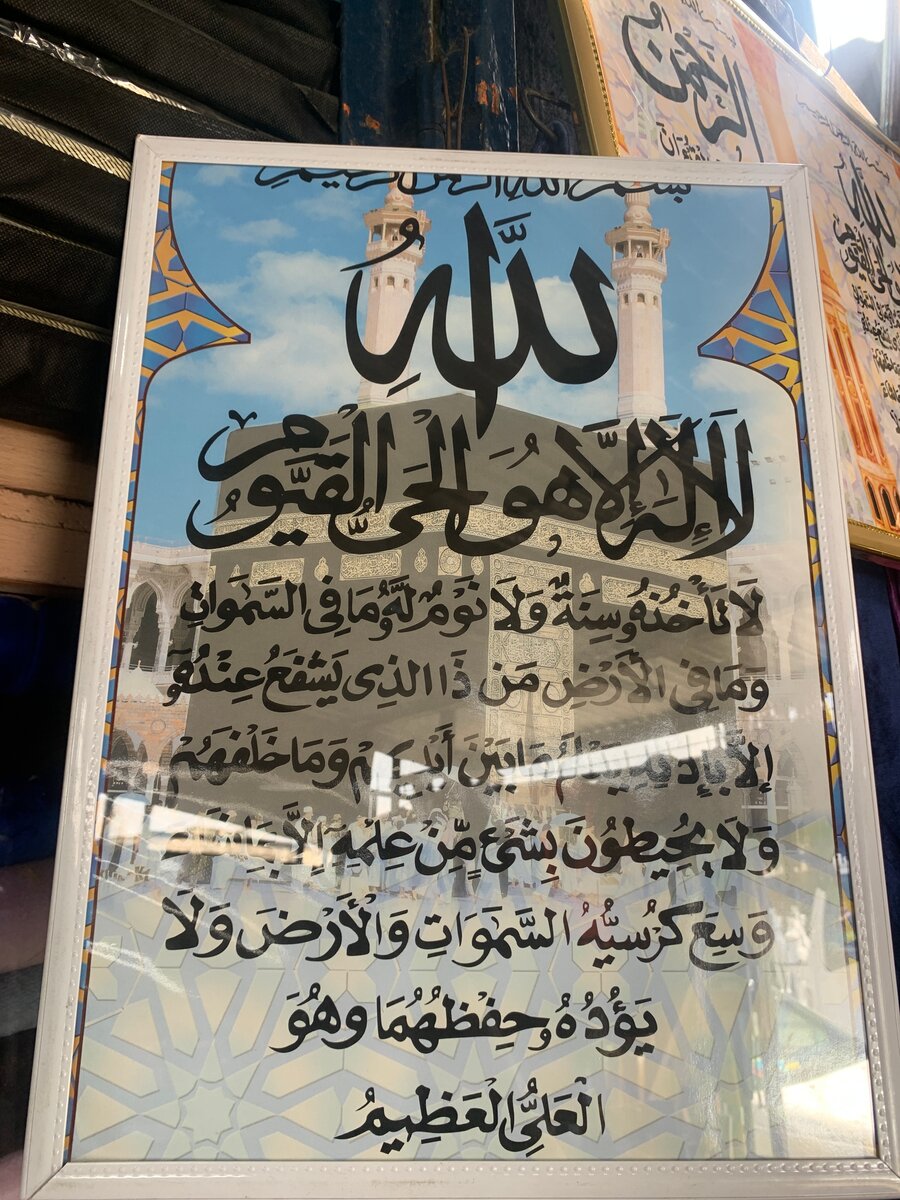 بسم الله الرحمن الرحيم
اللهُ
لَا إِلَٰهَ إِلَّا هُوَ الْحَيُّ الْقَيُّومُ
لَا تَأْخُذُهُ سِنَةٌ وَلَا نَوْمٌ لَّهُ مَا فِي السَّمٰوَاتِ
وَمَا فِي الْأَرْضِ مَن ذَا الَّذِي يَشْفَعُ عِنْدَهُ
إِلَّا بِإِذْنِهِ يَعْلَمُ مَا بَيْنَ أَيْدِيهِمْ وَمَا خَلْفَهُمْ
وَلَا يُحِيطُونَ بِشَيْءٍ مِّنْ عِلْمِهِ إِلَّا بِمَا شَاءَ
وَسِعَ كُرْسِيُّهُ السَّمٰوَاتِ وَالْأَرْضَ وَلَا
يَؤُدُهُ حِفْظُهُمَا وَهُوَ
الْعَلِيُّ الْعَظِيمُ
الرحمن
الله
الحي القيوم